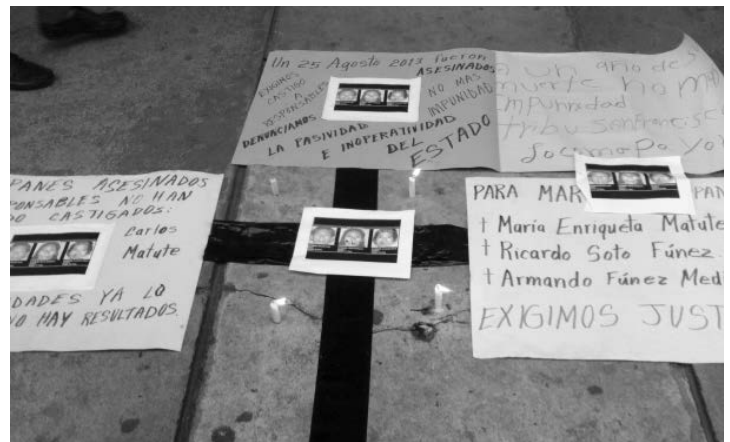 Un 25 Agosto 2013 fueron
ASESINADOS
EXIGIMOS
CASTIGO
A
RESPONSABLES
NO MAS
IMPUNIDAD
DENUNCIAMOS
LA PASIVIDAD
E INOPERATIVIDAD
DEL
ESTADO
un año de
muerte no m
impunidad
tribu San Francisc
Locomapa Yor
PANES ASESINADOS
PONSABLES NO HAN
DO CASTIGADOS:
Carlos
Matute
DADES YA LO
NO HAY RESULTADOS.
PARA MAR PAN
† María Enriqueta Matute
† Ricardo Soto Fúnez
† Armando Fúnez Med
EXIGIMOS JUST